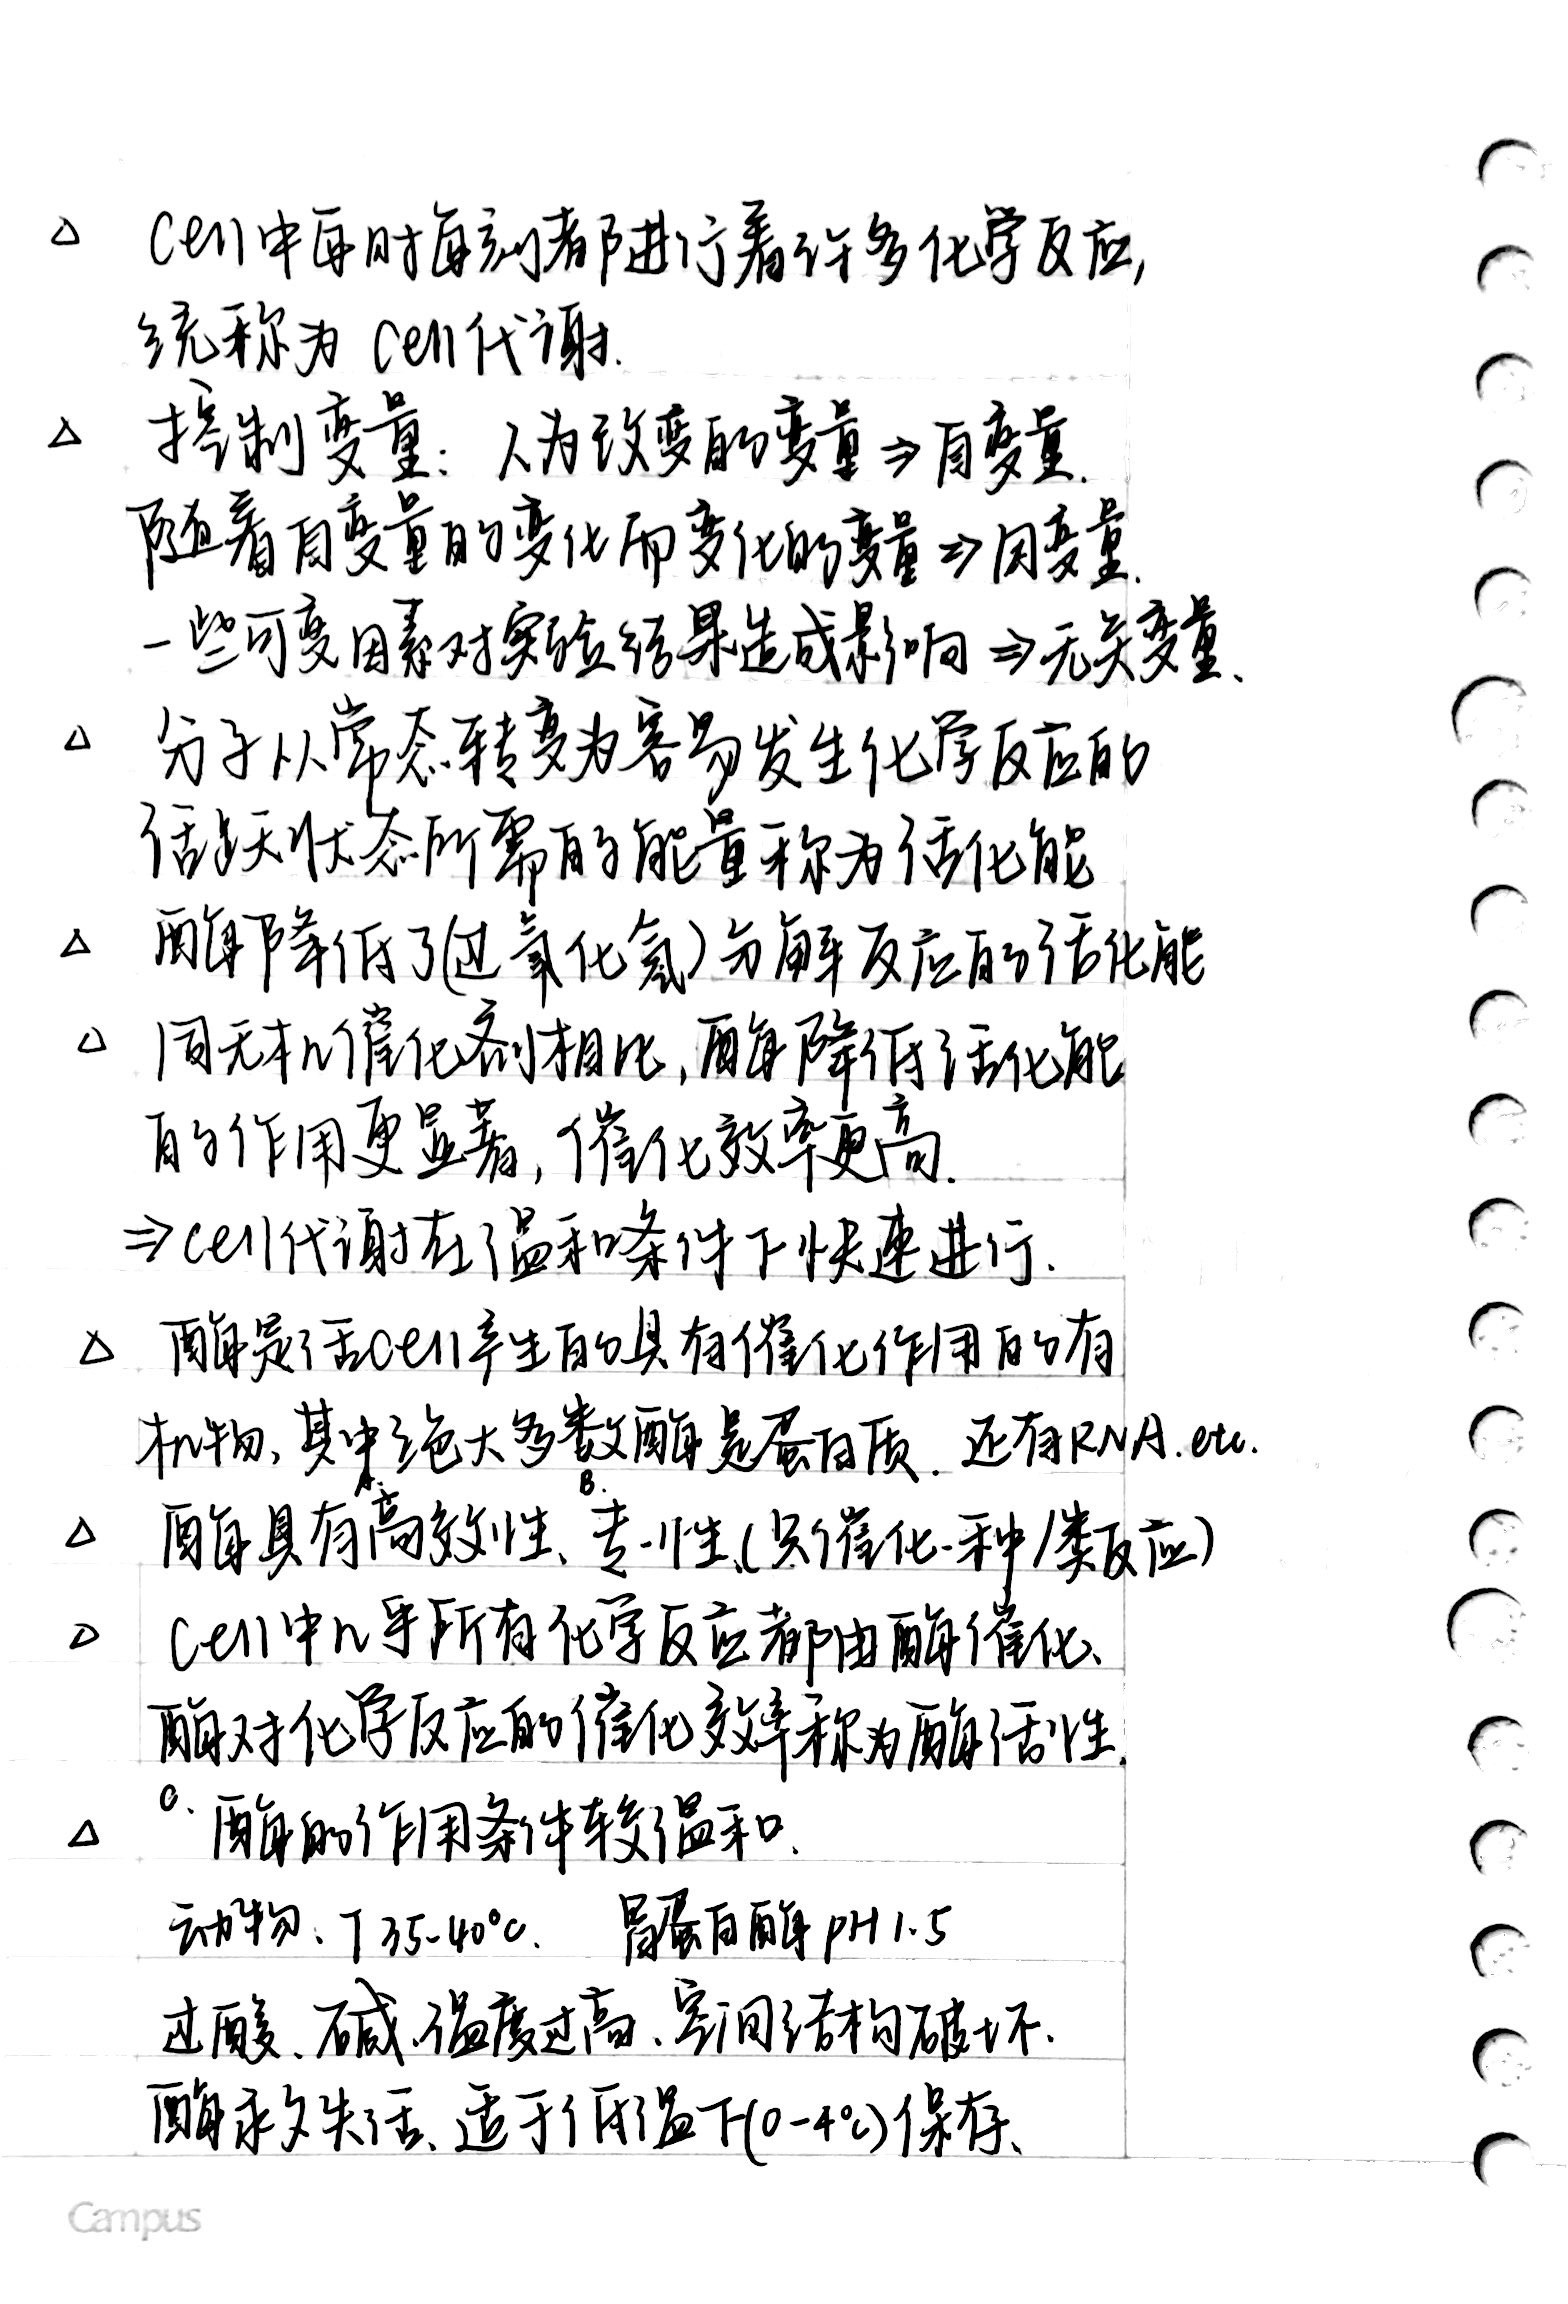 △ Cell中每时每刻都进行着许多化学反应,
统称为 Cell代谢.
△ 控制变量: 人为改变的变量⇒自变量.
随着自变量的变化而变化的变量⇒因变量.
一些可变因素对实验结果造成影响⇒无关变量、
△ 分子从常态转变为容易发生化学反应的
活跃状态所需的能量称为活化能
△ 酶降低了(过氧化氢)分解反应的活化能
△ 同无机催化剂相比,酶降低活化能
的作用更显著,催化效率更高.
⇒Cell代谢在温和条件下快速进行.
△ 酶是活cell产生的具有催化作用的有
机物、其中绝大多数酶是蛋白质. 还有RNA.etc.
△ 酶具有A.高效性、B.专一性、(只催化一种/类反应)
△ Cell中几乎所有化学反应都由酶催化、
酶对化学反应的催化效率称为酶活性.
△ C. 酶的作用条件较温和.
动物:T 35-40°C. 胃蛋白酶 pH 1.5
过酸、碱、温度过高、空间结构破坏.
酶永久失活、适于低温下(0-4℃)保存、
Campus